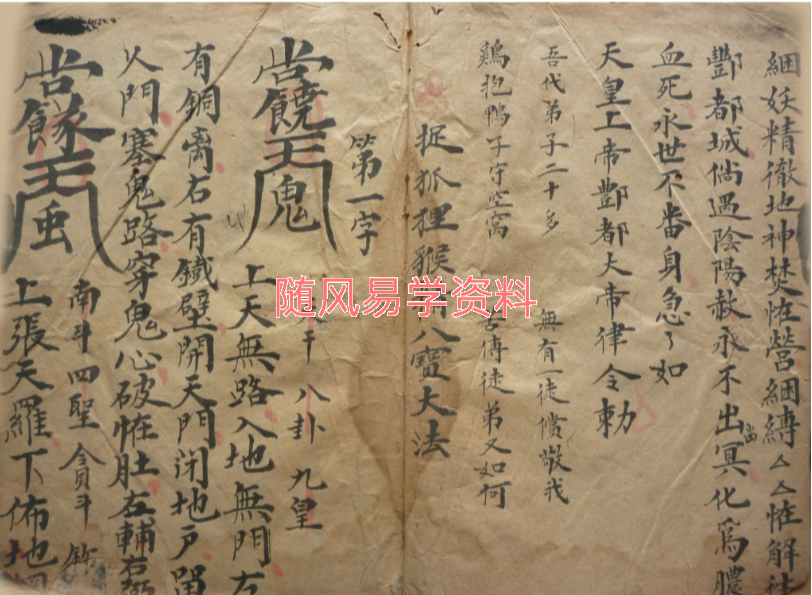 綑妖精徹地神焚怪營綑縛厶厶怪解
酆都城倘遇陰陽赦永不出冥化爲膿
當
血死永世不番身急々如
天皇上帝酆都大帝律令勅
吾代弟子二十多 無有一徒償敬我
鷄抱鴨子守空窩 傳徒弟又如何
捉狐狸猴 八寶大法
第一字
八卦 九皇
上天無路入地無門左
有銅 右有鐵壁開天門闭地戸留
人門塞鬼路穿鬼心破怪肚左輔右弼
南斗 四聖
上張天羅下佈地
随风易学资料